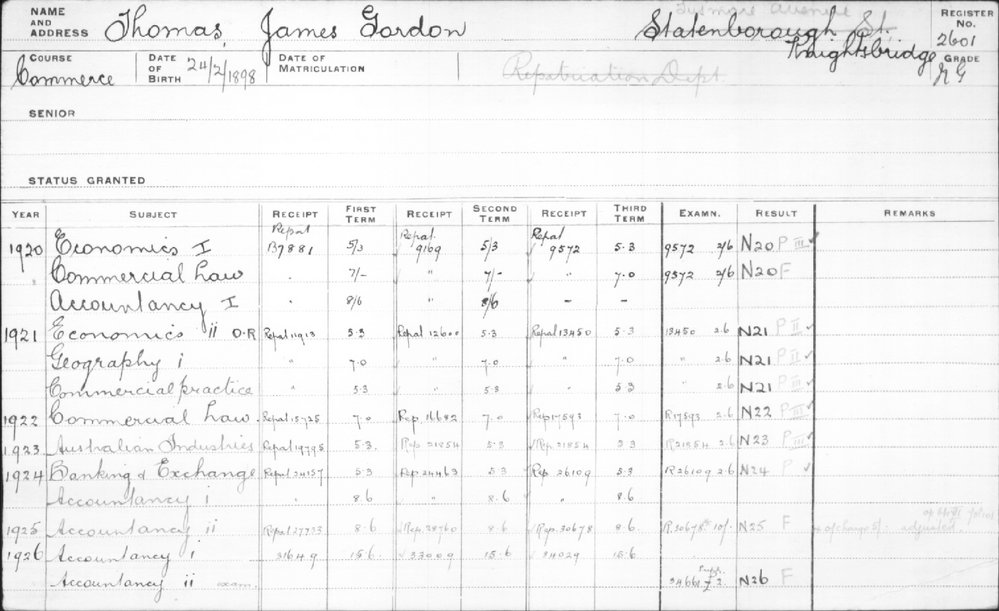 NAME AND ADDRESS Thomas, James Gordon Statenborough St. Knightsbridge REGISTER No. 2601
COURSE Commerce DATE OF BIRTH 24/2/1898 DATE OF MATRICULATION Repatriation Dept. GRADE
SENIOR
STATUS GRANTED
YEAR SUBJECT RECEIPT FIRST TERM RECEIPT SECOND TERM RECEIPT THIRD TERM EXAMN. RESULT REMARKS
1920 Economics I Repat B7881 5/3 Repat. 9169 5/3 Repat 9572 5.3 9572 2/6 N20 P III ✓
Commercial Law " 7/- " 7/- " 7.0 9572 2/6 N20 F
Accountancy I " 8/6 " 8/6 – –
1921 Economics ii O.R Repat 11913 5.3 Repat 12600 5.3 Repat 13450 5.3 13450 2.6 N21 P II ✓
Geography i " 7.0 " 7.0 " 7.0 " 2.6 N21 P II ✓
Commercial practice " 5.3 " 5.3 " 5.3 " 2.6 N21 P III ✓
1922 Commercial Law. Repat 15725 7.0 Rep. 16682 7.0 Rep 17593 7.0 R17593 2.6 N22 P III ✓
1923 Australian Industries Repat 19795 5.3. Rep 21854 5.3 Rep. 21854 5.3 R21854 2.6 N23 P III ✓
1924 Banking & Exchange Repat 24157 5.3 Rep 24463 5.3 Rep 26109 5.3 R26109 2.6 N24 P ✓
Accountancy i " 8.6 " 8.6 " 8.6
1925 Accountancy ii Repat 27723 8.6 Rep. 28760 8.6 Rep. 30678 8.6 R30678 10/- N25 F adjusted.
1926 Accountancy i 31649 15.6 33009 15.6 34029 15.6
Accountancy ii exam. N26 F